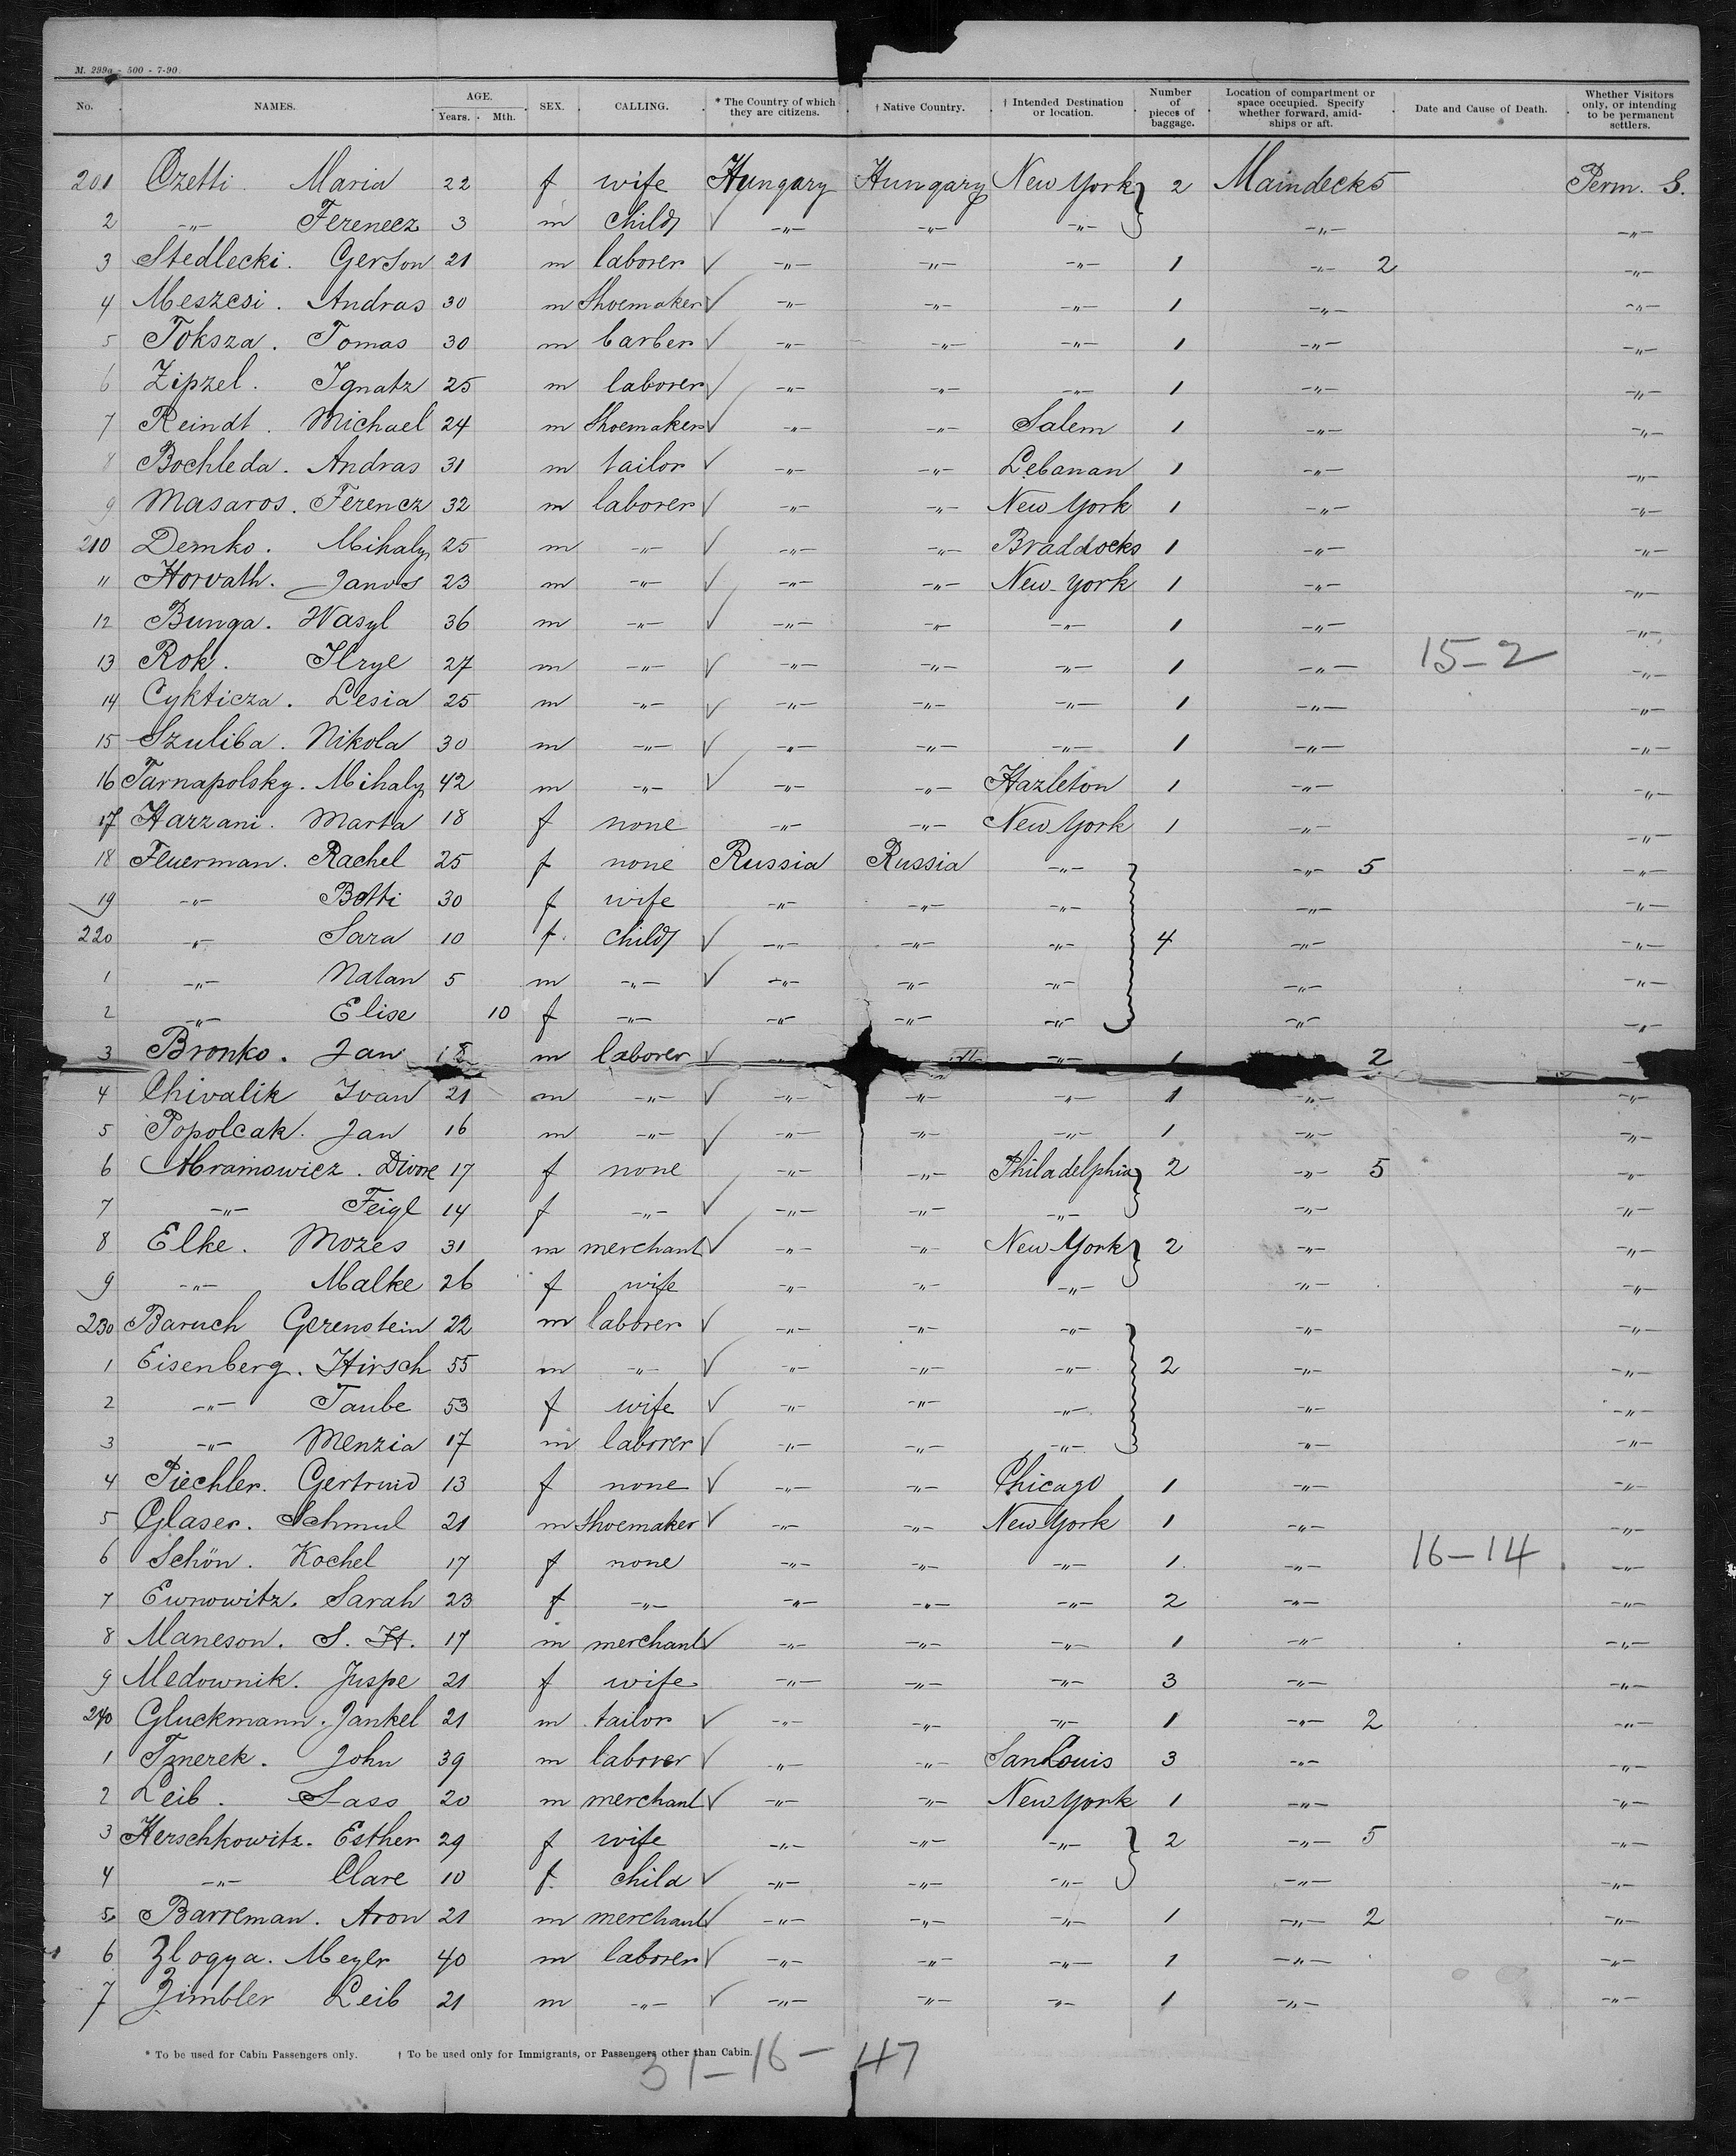 M. 299a - 500 - 7-90.
No. NAMES. AGE. Years. Mth. SEX. CALLING. * The Country of which they are citizens. † Native Country. † Intended Destination or location. Number of pieces of baggage. Location of compartment or space occupied. Specify whether forward, amidships or aft. Date and Cause of Death. Whether Visitors only, or intending to be permanent settlers.
201 Czetti. Maria 22 f wife Hungary Hungary New York } 2 Maindeck 5 Perm. S.
2 -"- Ferencz 3 m child ✓ -"- -"- -"- -"- -"-
3 Stedlecki. Gerson 21 m laborer ✓ -"- -"- -"- 1 -"- 2 -"-
4 Meszesi. Andras 30 m Shoemaker ✓ -"- -"- -"- 1 -"- -"-
5 Toksza. Tomas 30 m barber ✓ -"- -"- -"- 1 -"- -"-
6 Zipzel. Ignatz 25 m laborer ✓ -"- -"- -"- 1 -"- -"-
7 Reindt. Michael 24 m Shoemaker ✓ -"- -"- Salem 1 -"- -"-
8 Bochleda. Andras 31 m tailor ✓ -"- -"- Lebanan 1 -"- -"-
9 Masaros. Ferencz 32 m laborer ✓ -"- -"- New York 1 -"- -"-
210 Demko. Mihaly 25 m -"- ✓ -"- -"- Braddocks 1 -"- -"-
11 Horvath. Janos 23 m -"- ✓ -"- -"- New York 1 -"- -"-
12 Bunga. Wasyl 36 m -"- ✓ -"- -"- -"- 1 -"- -"-
13 Rok. Ilrye 27 m -"- ✓ -"- -"- -"- 1 -"- 15-2 -"-
14 Cykticza. Lesia 25 m -"- ✓ -"- -"- -"- 1 -"- -"-
15 Szuliba. Nikola 30 m -"- ✓ -"- -"- -"- 1 -"- -"-
16 Tarnapolsky. Mihaly 42 m -"- ✓ -"- -"- Hazleton 1 -"- -"-
17 Harzani. Marta 18 f none -"- -"- New York 1 -"- -"-
18 Feuerman. Rachel 25 f none Russia Russia -"- } -"- 5 -"-
19 -"- Betti 30 f wife -"- -"- -"- -"- -"-
220 -"- Sara 10 f. child ✓ -"- -"- -"- 4 -"- -"-
1 -"- Natan 5 m -"- ✓ -"- -"- -"- -"- -"-
2 -"- Elise 10 f -"- -"- -"- -"- -"- -"-
3 Bronko. Jan 18 m laborer ✓ -"- -"- -"- 1 2
4 Chivalik Ivan 21 m -"- ✓ -"- -"- -"- 1 -"- -"-
5 Popolcak. Jan 16 m -"- ✓ -"- -"- -"- 1 -"- -"-
6 Abramowicz. Divre 17 f none -"- -"- Philadelphia } 2 -"- 5 -"-
7 -"- Feigl 14 f -"- ✓ -"- -"- -"- -"- -"-
8 Elke. Mozes 31 m merchant ✓ -"- -"- New York } 2 -"- -"-
9 -"- Malke 26 f wife -"- -"- -"- -"- -"-
230 Baruch Gerenstein 22 m laborer ✓ -"- -"- -"- } -"- -"-
1 Eisenberg. Hirsch 55 m -"- ✓ -"- -"- -"- 2 -"- -"-
2 -"- Taube 53 f wife ✓ -"- -"- -"- -"- -"-
3 -"- Menzia 17 m laborer ✓ -"- -"- -"- -"- -"-
4 Piechler. Gertruid 13 f none ✓ -"- -"- Chicago 1 -"- -"-
5 Glaser. Schmul 21 m Shoemaker ✓ -"- -"- New York 1 -"- -"-
6 Schön. Kochel 17 f none -"- -"- -"- 1. -"- 16-14 -"-
7 Ewnowitz. Sarah 23 f -"- -"- -"- -"- 2 -"- -"-
8 Maneson. S. H. 17 m merchant ✓ -"- -"- -"- 1 -"- -"-
9 Medownik. Juspe 21 f wife -"- -"- -"- 3 -"- -"-
240 Gluckmann. Jankel 21 m tailor ✓ -"- -"- -"- 1 -"- 2 -"-
1 Tznerek. John 39 m laborer ✓ -"- -"- San Louis 3 -"- -"-
2 Leib. Sass 20 m merchant ✓ -"- -"- New York 1 -"- -"-
3 Herschkowitz. Esther 29 f wife -"- -"- -"- } 2 -"- 5 -"-
4 -"- Clare 10 f. child ✓ -"- -"- -"- -"- -"-
5 Barreman. Aron 21 m merchant ✓ -"- -"- -"- 1 -"- 2 -"-
6 Zlogya. Meyer 40 m laborer ✓ -"- -"- -"- 1 -"- -"-
7 Zimbler Leib 21 m -"- ✓ -"- -"- -"- 1 -"- -"-
* To be used for Cabin Passengers only. † To be used only for Immigrants, or Passengers other than Cabin.
31-16-47